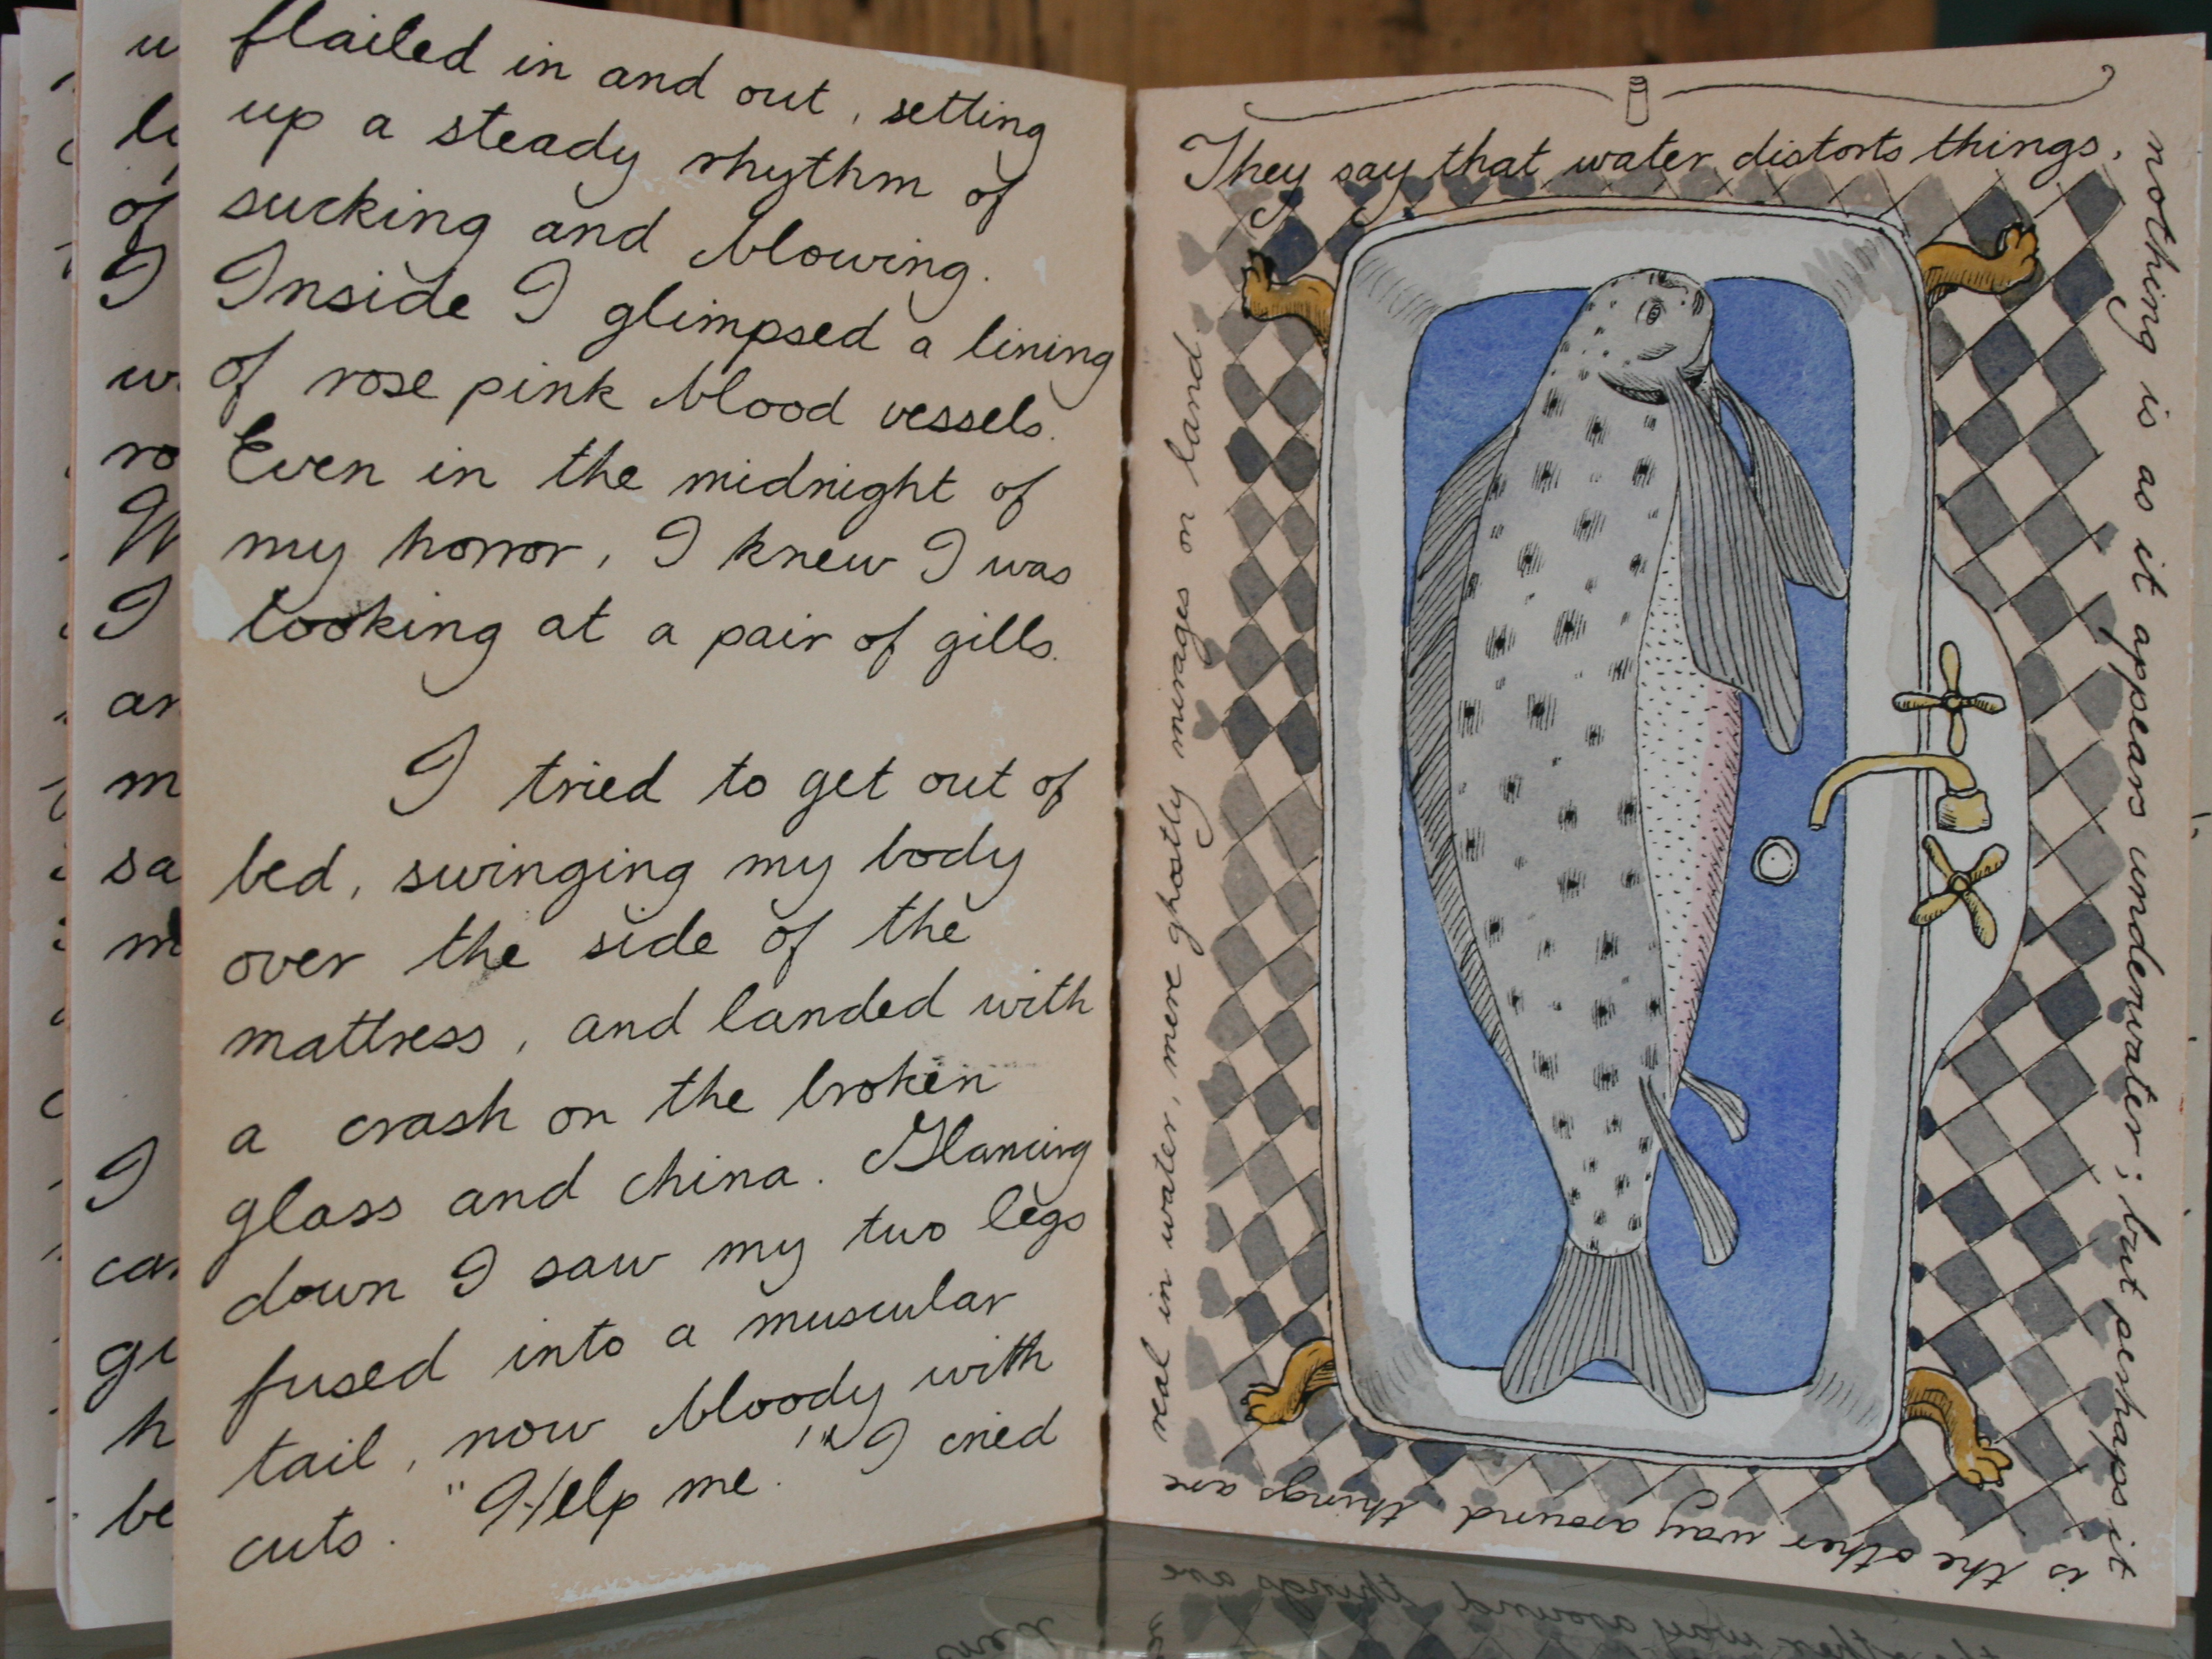 flailed in and out, setting
up a steady rhythm of
sucking and blowing.
Inside I glimpsed a lining
of rose pink blood vessels.
Even in the midnight of
my horror, I knew I was
looking at a pair of gills.
I tried to get out of
bed, swinging my body
over the side of the
mattress, and landed with
a crash on the broken
glass and china. Glancing
down I saw my two legs
fused into a muscular
tail, now bloody with
cuts. "Help me." I cried
They say that water distorts things,
nothing is as it appears underwater; but perhaps it
is the other way around, things are
real in water, mere ghostly mirages on land.
of
I
I
I